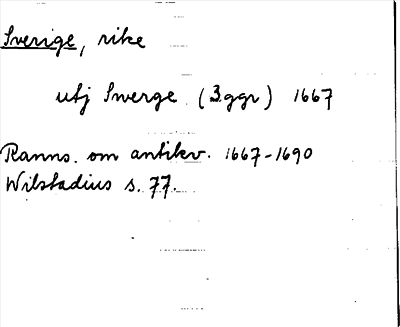 Sverige, rike
utj Swerge (3 ggr) 1667
Ranns. om antikv. 1667-1690
Wilstadius s. 77.